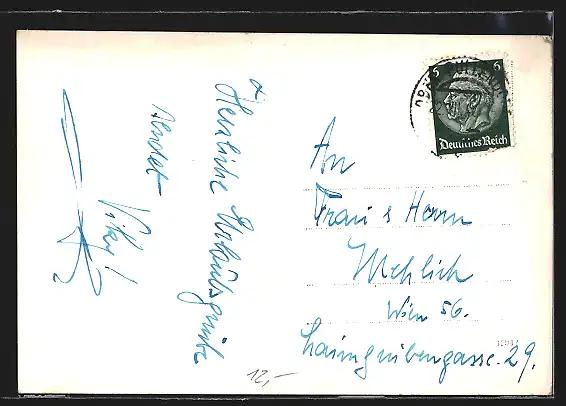 Herzliche Urlaubsgrüße
sendet
Viky!
6 6
Deutsches Reich
An
Frau & Herrn
Mehlich
Wien 56.
Laimgrubengasse. 29.
12,-